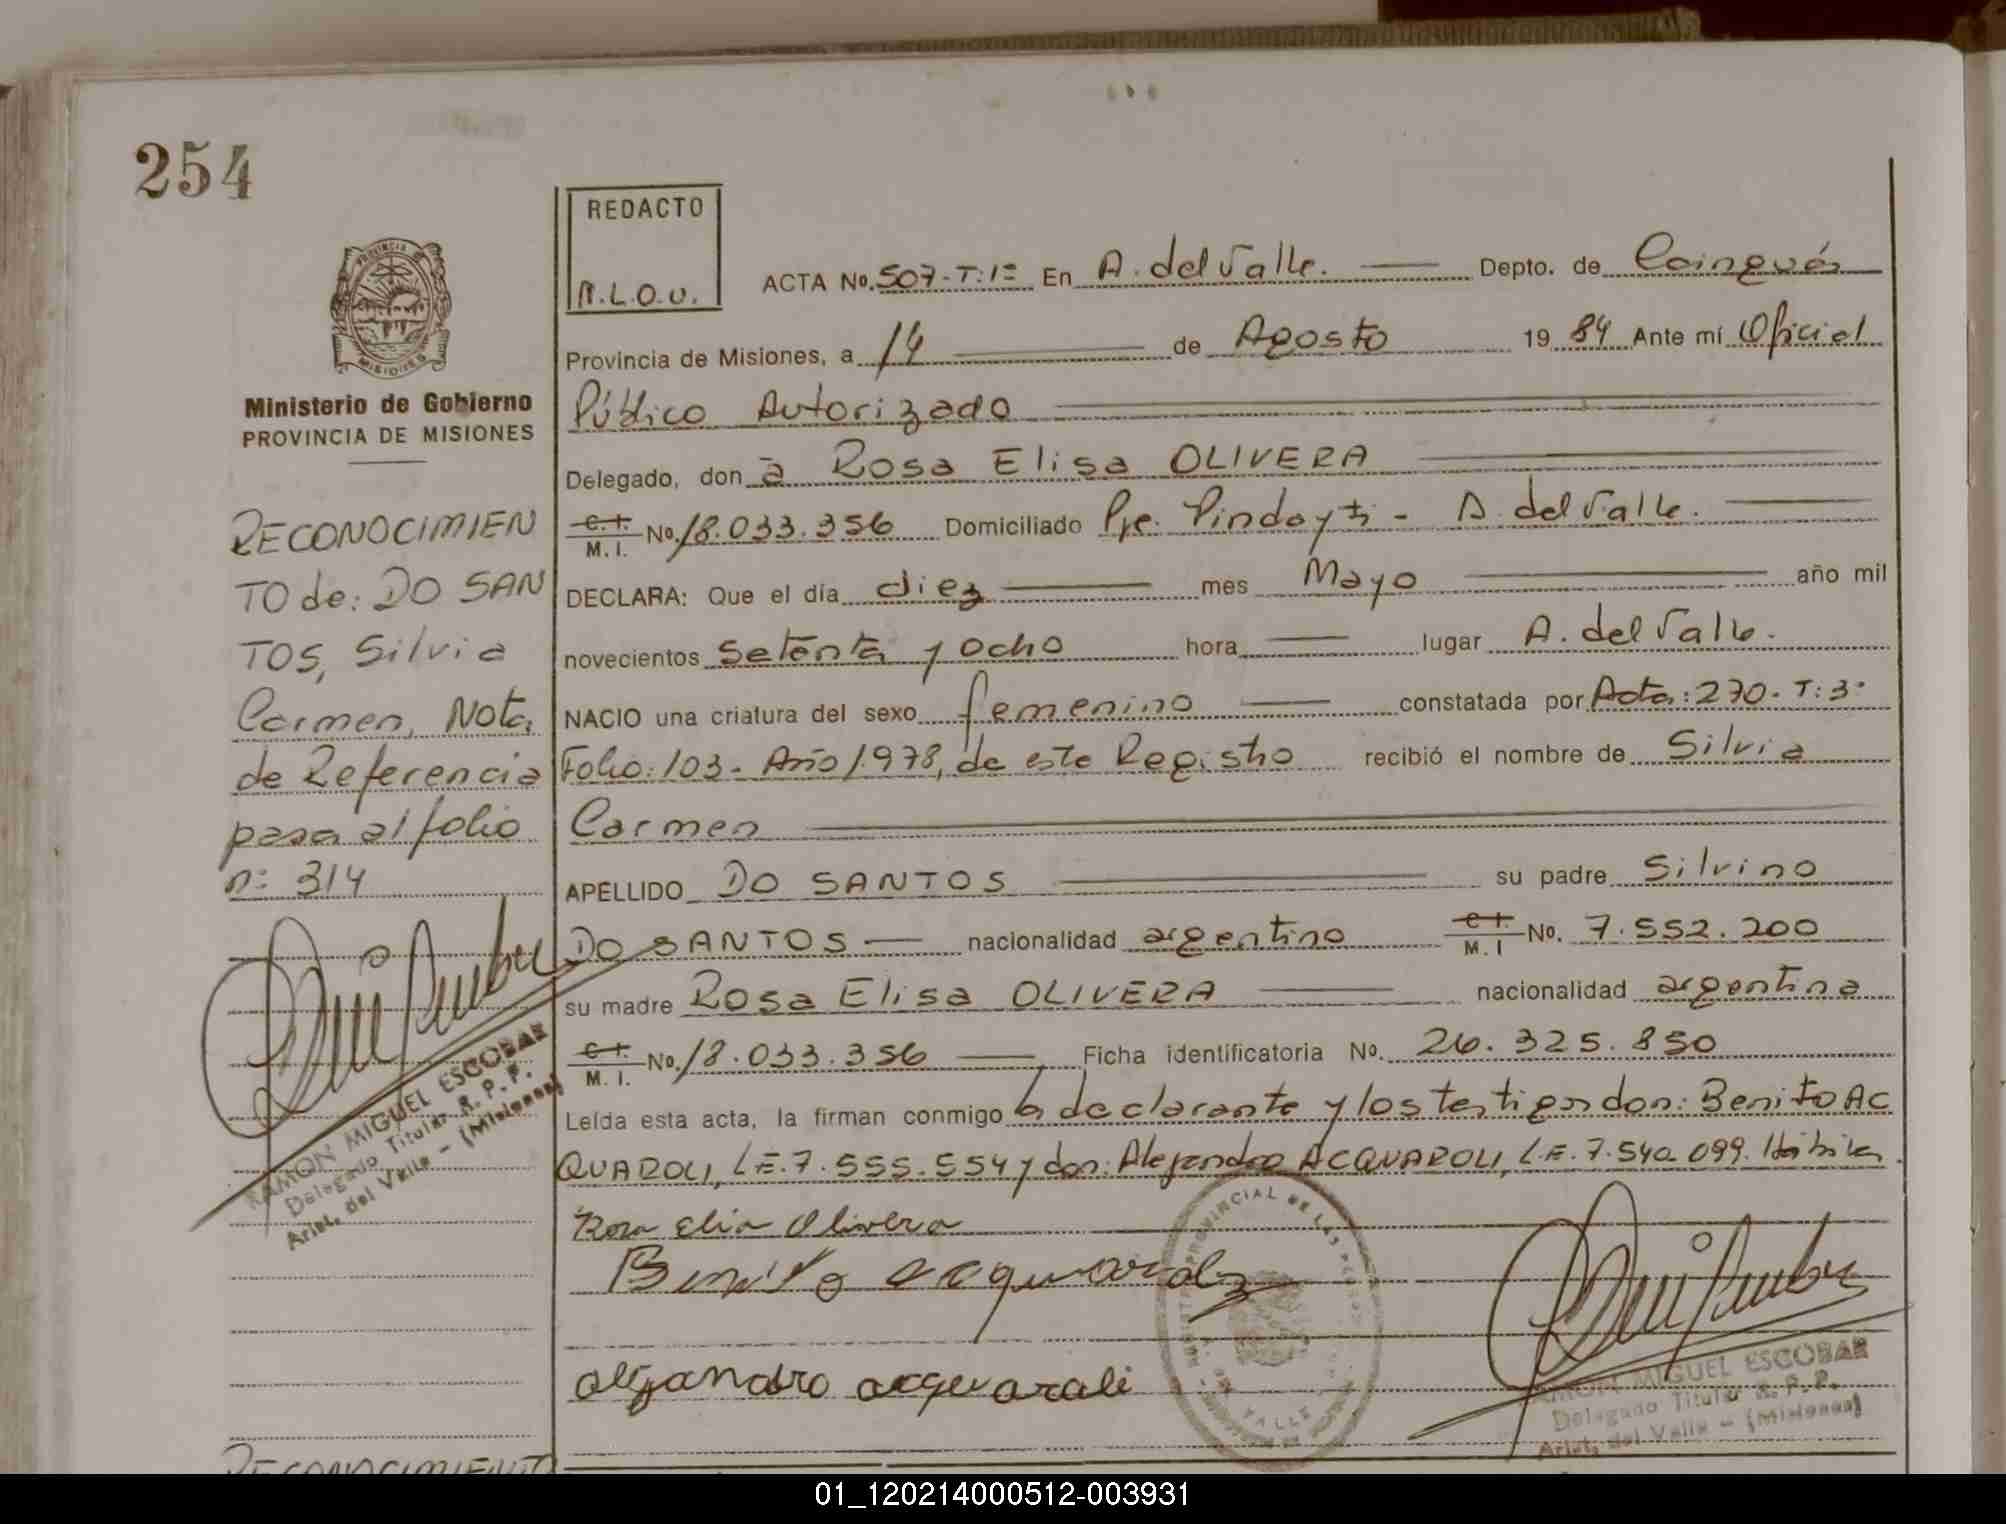 254
REDACTO
R.L.O.U.
PROVINCIA
MISIONES
Ministerio de Gobierno
PROVINCIA DE MISIONES
RECONOCIMIEN
TO de: DO SAN
TOS, Silvia
Carmen, Nota
de Referencia
pasa al folio
nº 314
RAMON MIGUEL ESCOBAR
Delegado Titular R. P. P.
Arist. del Valle - (Misiones)
ACTA No. 507-T:1º En A. del Valle. Depto. de Cainguás
Provincia de Misiones, a 14 de Agosto 19 84 Ante mí Oficial
Público Autorizado
Delegado, don a Rosa Elisa OLIVERA
C.I. M. I. No. 18.033.356 Domiciliado Pje. Pindayti - A. del Valle.
DECLARA: Que el día diez mes Mayo año mil
novecientos setenta y ocho hora lugar A. del Valle.
NACIO una criatura del sexo femenino constatada por Acta: 270. T: 3º
Folio: 103 - Año 1.978, de este Registro recibió el nombre de Silvia
Carmen
APELLIDO DO SANTOS su padre Silvino
DO SANTOS nacionalidad argentino C.I. M. I No. 7.552.200
su madre Rosa Elisa OLIVERA nacionalidad argentina
C.I. M. I. No. 18.033.356 Ficha identificatoria No. 26.325.850
Leída esta acta, la firman conmigo la declarante y los testigos don: Benito AC
QUAROLI, L.E. 7.555.554 y don: Alejandro ACQUAROLI, L.E. 7.540.099. Hábiles.
Rosa Elisa Olivera
Benito acquaroli
alejandro acquarali
PROVINCIAL DE LAS PERSONAS
VALLE
RAMON MIGUEL ESCOBAR
Delegado Titular R. P. P.
Arist. del Valle - (Misiones)
RECONOCIMIENTO
01_120214000512-003931